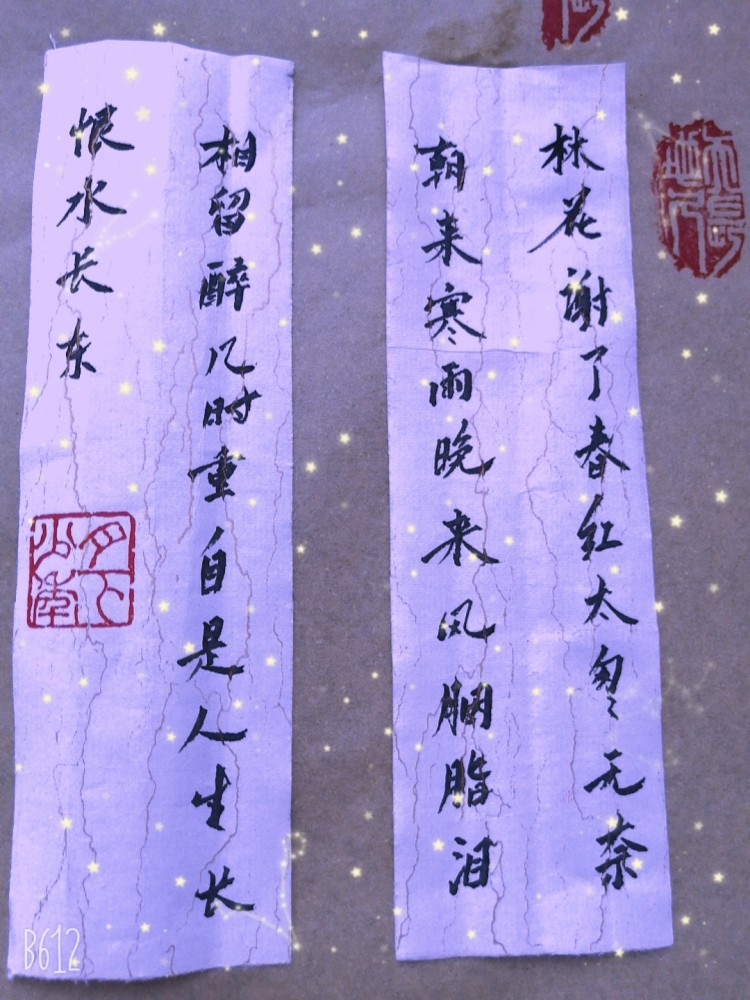 林花谢了春红太匆匆无奈
朝来寒雨晚来风胭脂泪
相留醉几时重自是人生长
恨水长东
月下
B612